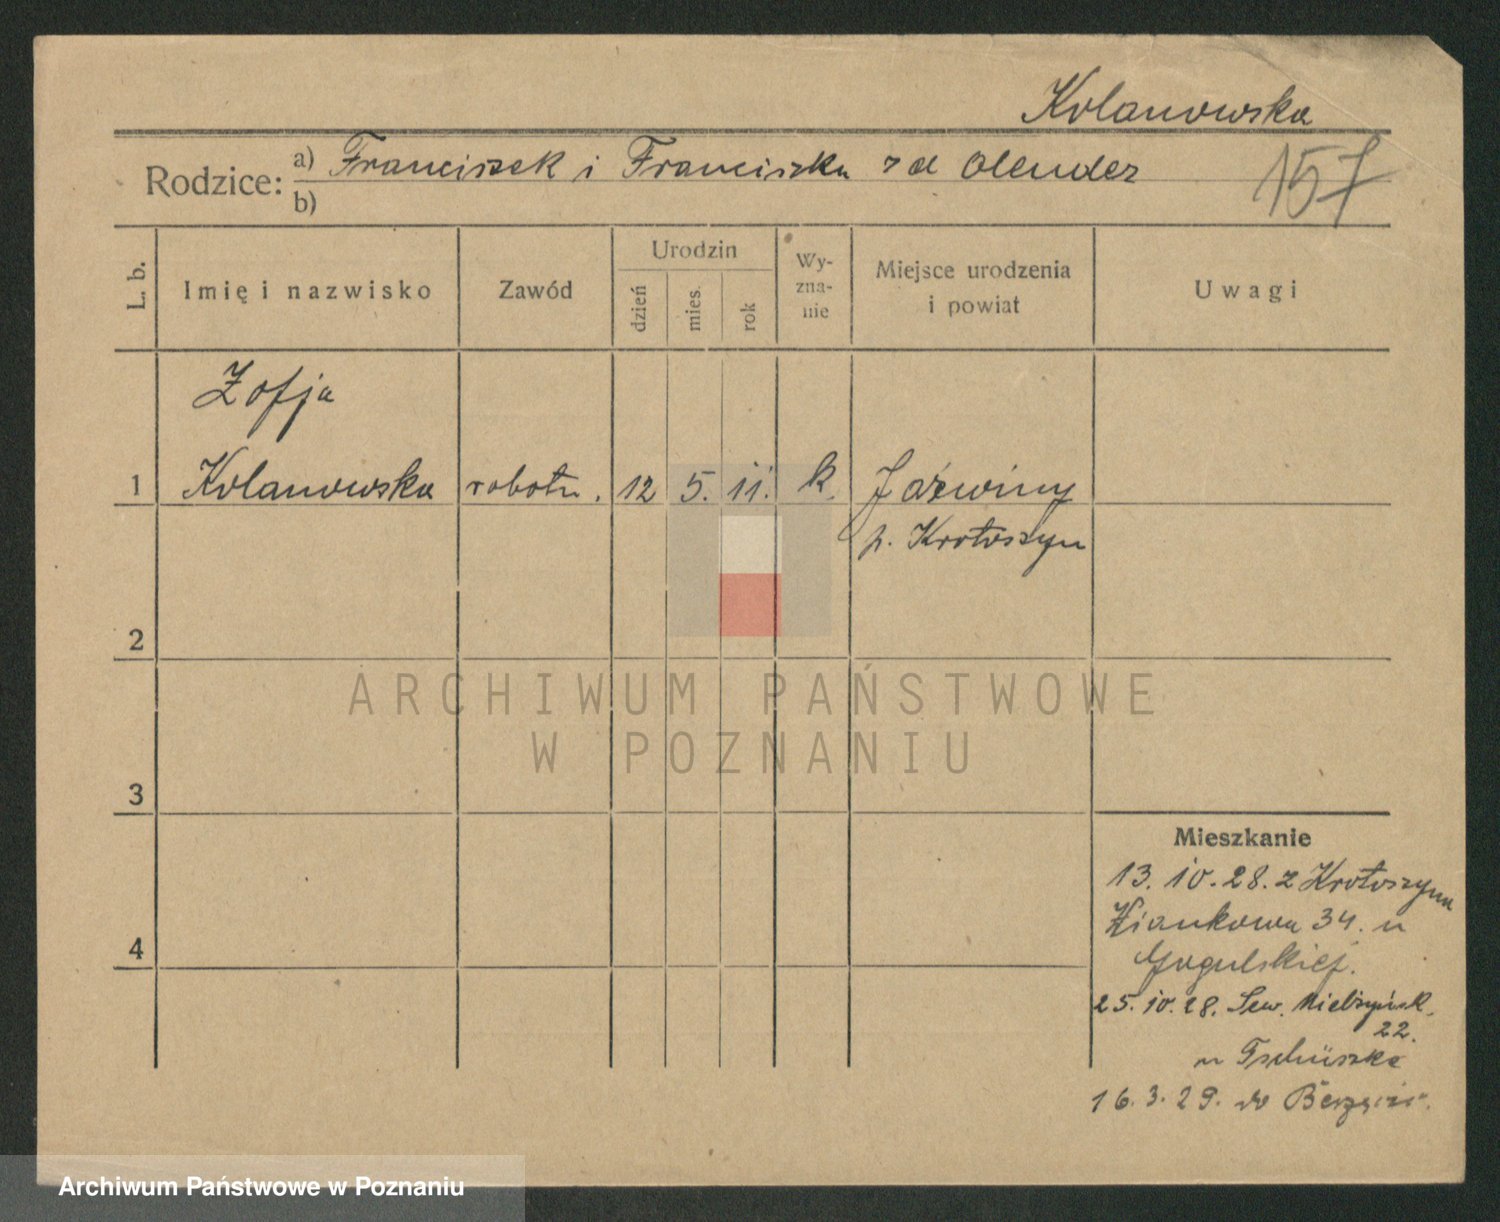 Kolanowska
Rodzice: a) Franciszek i Franciszka z d Olender
b)
157
L. b.
Imię i nazwisko
Zawód
Urodzin
dzień
mies.
rok
Wy-
zna-
nie
Miejsce urodzenia
i powiat
Uwagi
Zofja
1 Kolanowska robotn. 12 5. 11. k. Jaźwiny
p. Krotoszyn
2
3
4
ARCHIWUM PAŃSTWOWE
W POZNANIU
Mieszkanie
13. 10. 28. z Krotoszyna
34. u
Gogulskiej.
25. 10. 28. Sew. Mielżyńsk.
22.
u
16. 3. 29. do
Archiwum Państwowe w Poznaniu